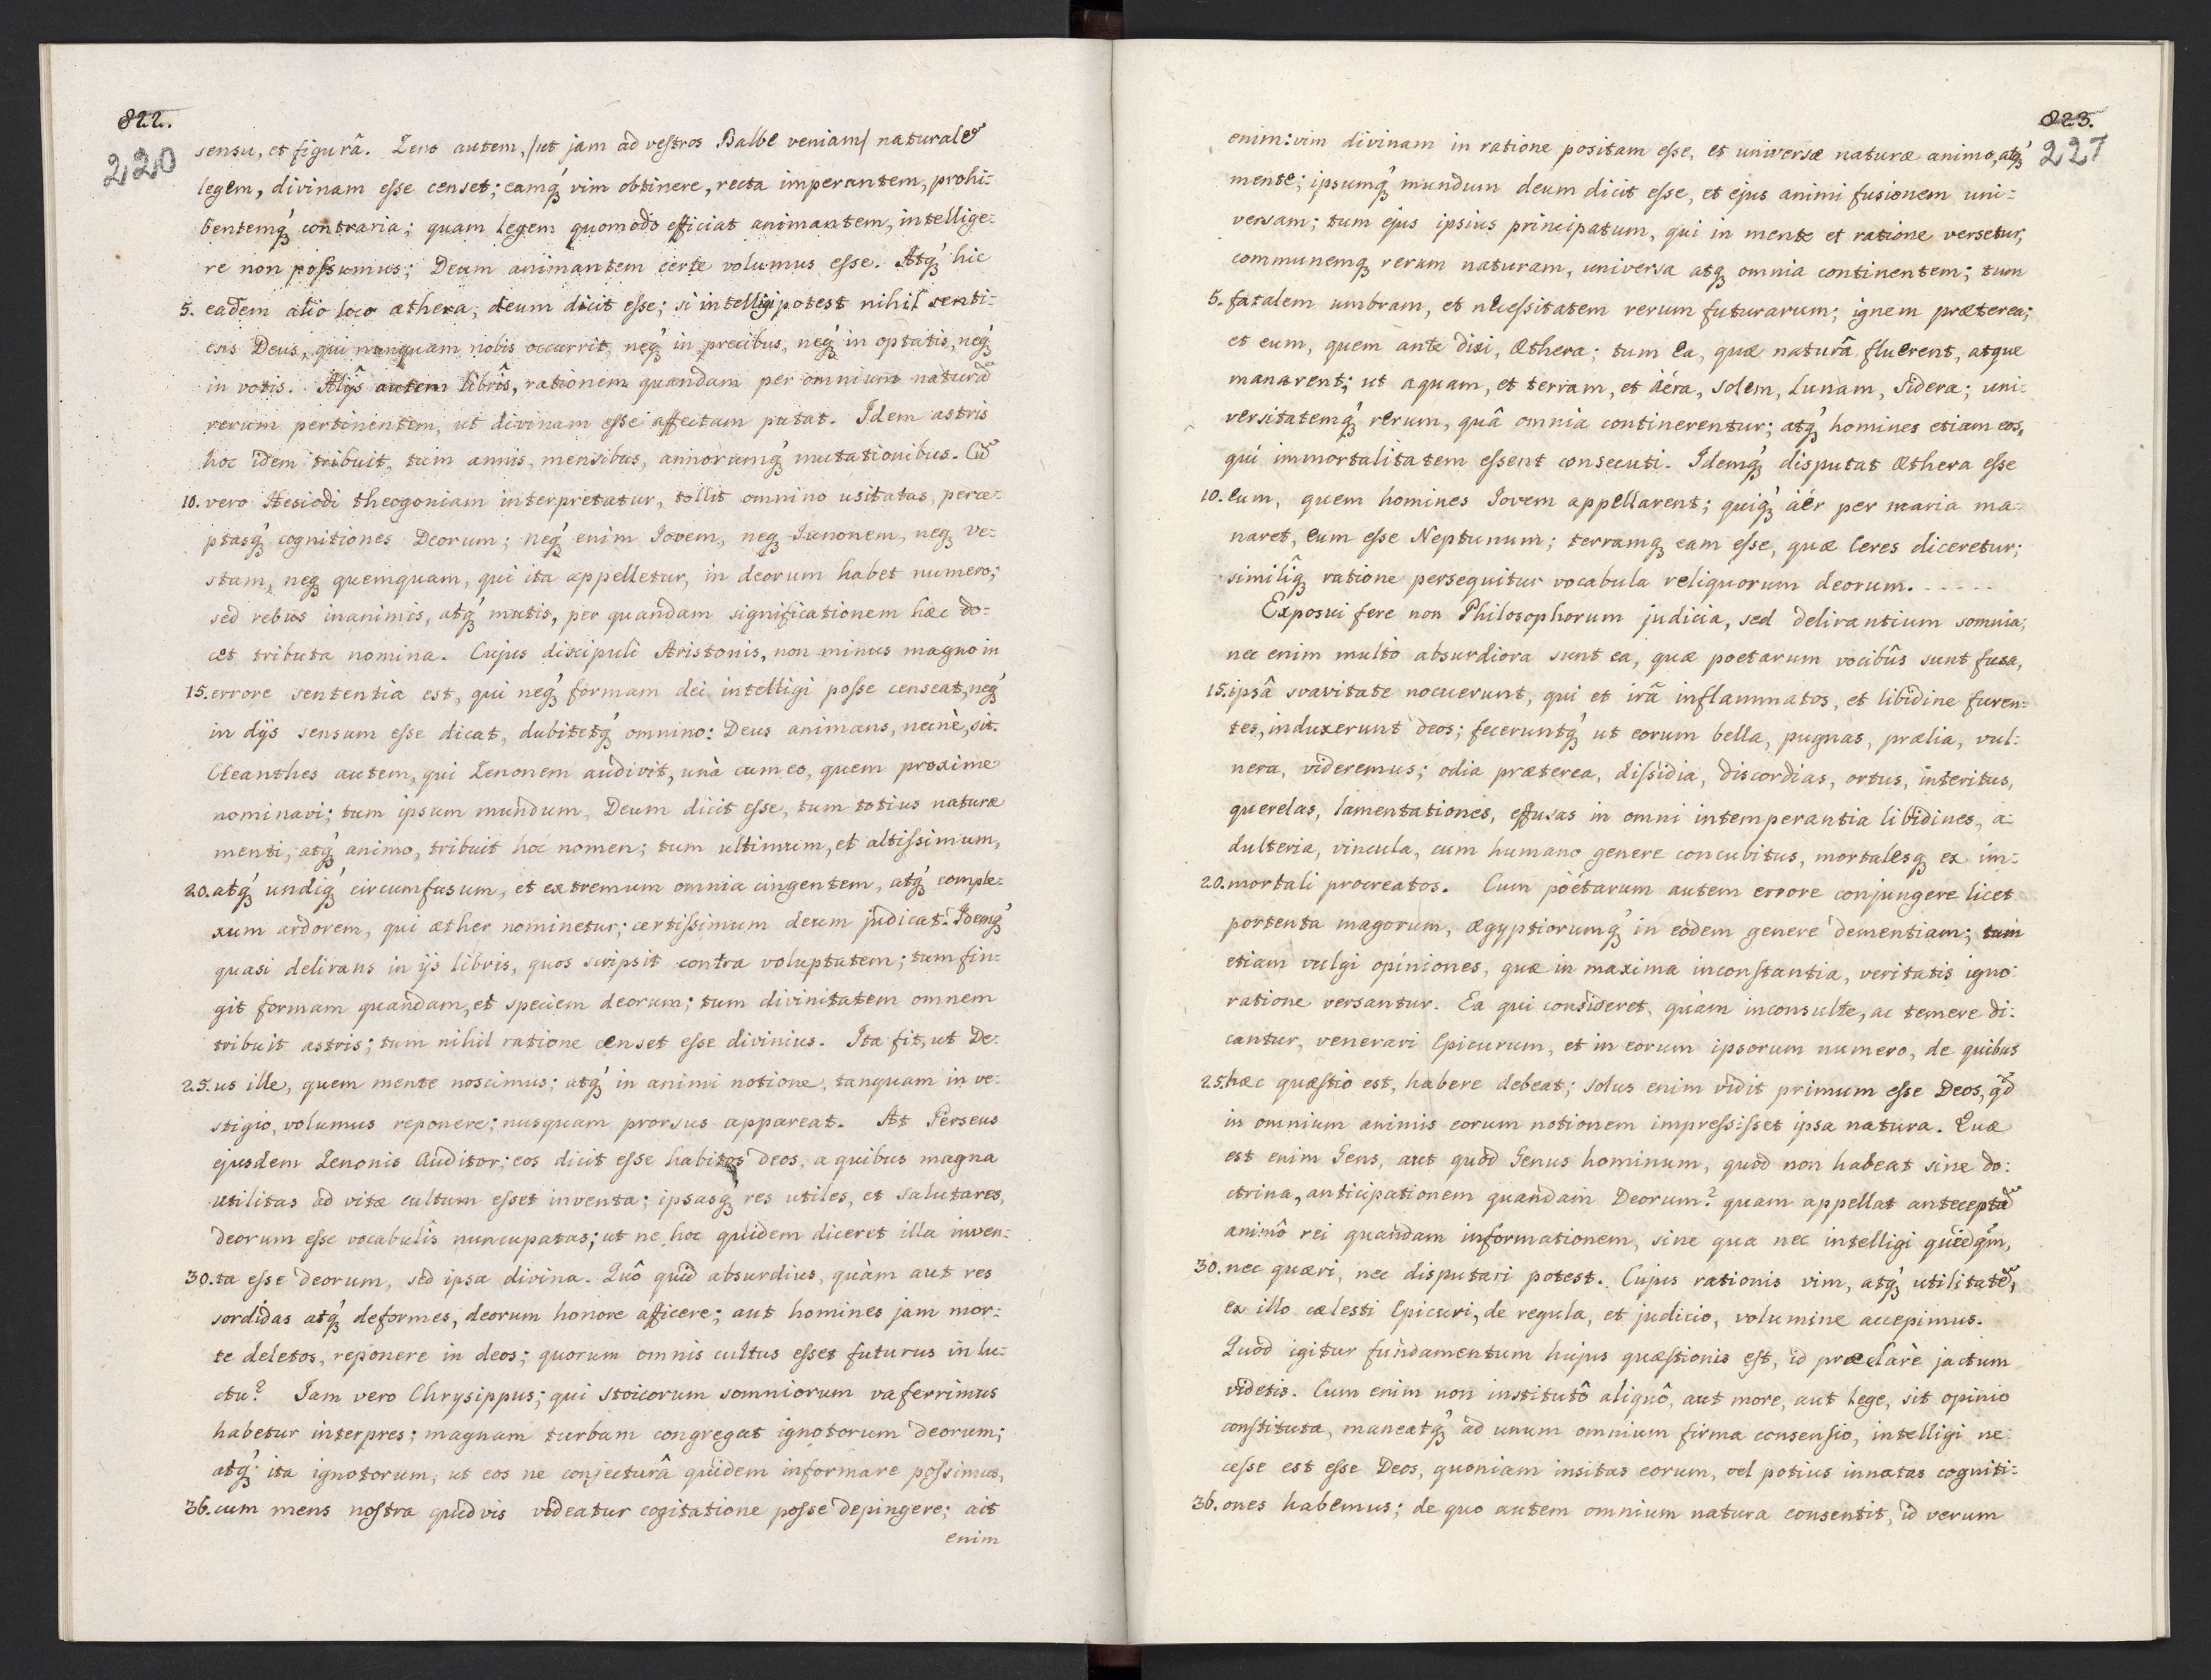 822.
220
sensu, et figurâ. Zeno autem, /ut jam ad vestros Balbe veniam/ naturale͂
legem, divinam esse censet; eamq́ꝫ vim obtinere, recta imperantem, prohi=
bentemq́ꝫ contraria; quam legem quomodo efficiat animantem, intellige=
re non possumus; Deum animantem certe volumus esse. Atq́ꝫ hic
5. eadem alio loco æthera, deum dicit esse; si intelligi potest nihil senti=
ens Deus, qui nunquam nobis occurrit, neq́ꝫ in precibus, neq́ꝫ in optatis, neq́ꝫ
in votis. Alijs autem librîs, rationem quandam per omnium natura͂
rerum pertinentem, ut divinam esse affectam putat. Idem astris
hoc idem tribuit, tum annis, mensibus, annorumq́ꝫ mutationibus. Cu͂
10. vero Hesiodi theogoniam interpretatur, tollit omnino usitatas, perce=
ptasq́ꝫ cognitiones Deorum; neq́ꝫ enim Iovem, neqꝫ Iunonem, neqꝫ Ve=
stam, neqꝫ quemquam, qui ita appelletur, in deorum habet numero;
sed rebus inanimis, atq́ꝫ mutis, per quandam significationem hæc do=
cet tributa nomina. Cujus discipuli Aristonis, non minus magno in
15. errore sententia est, qui neq́ꝫ formam dei intelligi posse censeat, neq́ꝫ
in dijs sensum esse dicat, dubitetq́ꝫ omnino: Deus animans, necnè, sit.
Cleanthes autem, qui Zenonem audivit, unà cum eo, quem proxime
nominavi; tum ipsum mundum, Deum dicit esse, tum totius naturæ
menti, atq́ꝫ animo, tribuit hoc nomen; tum ultimum, et altissimum,
20. atq́ꝫ undiq́ꝫ circumfusum, et extremum omnia cingentem, atq́ꝫ comple=
xum ardorem, qui æther nominetur; certissimum deum judicat: Idemq́ꝫ
quasi delirans in ijs libris, quos scripsit contra voluptatem; tum fin=
git formam quandam, et speciem deorum; tum divinitatem omnem
tribuit astris; tum nihil ratione censet esse divinius. Ita fit, ut De=
25. us ille, quem mente noscimus; atq́ꝫ in animi notione, tanquam in ve=
stigio, volumus reponere; nusquam prorsus appareat. At Perseus
ejusdem Zenonis Auditor; eos dicit esse habitos deos, a quibus magna
utilitas ad vitæ cultum esset inventa; ipsasq́ꝫ res utiles, et salutares,
deorum esse vocabulîs nuncupatas; ut ne hoc quidem diceret illa inven=
30. ta esse deorum, sed ipsa divina. Quô quid absurdius, quàm aut res
sordidas atq́ꝫ deformes, deorum honore afficere; aut homines jam mor=
te deletos, reponere in deos; quorum omnis cultus esset futurus in lu=
ctu? Iam vero Chrysippus; qui stoicorum somniorum vaferrimus
habetur interpres; magnam turbam congregat ignotorum deorum;
atq́ꝫ ita ignotorum, ut eos ne conjecturâ quidem informare possimus,
36. cum mens nostra quidvis videatur cogitatione posse depingere; ait
enim
823.
221
enim: vim divinam in ratione positam esse, et universæ naturæ animo, atq́ꝫ
mente; ipsumq́ꝫ mundum deum dicit esse, et ejus animi fusionem uni=
versam; tum ejus ipsius principatum, qui in mente et ratione versetur,
communemqꝫ rerum naturam, universa atqꝫ omnia continentem; tum
5. fatalem umbram, et necessitatem rerum futurarum; ignem præterea;
et eum, quem ante dixi, æthera; tum ea, quæ naturâ fluerent, atque
manarent; ut aquam, et terram, et äéra, solem, Lunam, sidera; uni=
versitatemq́ꝫ rerum, quâ omnia continerentur; atq́ꝫ homines etiam eos,
qui immortalitatem essent consecuti. Idemq́ꝫ disputat æthera esse
10. eum, quem homines Iovem appellarent; quiq́ꝫ äér per maria ma=
naret, eum esse Neptunum; terramqꝫ eam esse, quæ Ceres diceretur;
similiqꝫ ratione persequitur vocabula reliquorum deorum. - - - - -
Exposui fere non Philosophorum judicia, sed delirantium somnia;
nec enim multò absurdiora sunt ea, quæ poetarum vocibûs sunt fusa,
15. ipsâ svavitate nocuerunt, qui et irâ inflammatos, et libidine furen=
tes, induxerunt deos; feceruntq́ꝫ ut eorum bella, pugnas, prælia, vul=
nera, videremus; odia præterea, dissidia, discordias, ortus, interitus,
querelas, lamentationes, effusas in omni intemperantia libidines, a=
dulteria, vincula, cum humano genere concubitus, mortalesqꝫ ex im=
20. mortali procreatos. Cum poëtarum autem errore conjungere licet
portenta magorum, ægyptiorumq́ꝫ in eodem genere dementiam; tum
etiam vulgi opiniones, quæ in maxima inconstantia, veritatis igno=
ratione versantur. Ea qui consideret, quàm inconsulte, ac temere di=
cantur, venerari Epicurum, et in eorum ipsorum numero, de quibus
25. hæc quæstio est, habere debeat; solus enim vidit primum esse Deos, qd͂
in omnium animis eorum notionem impressisset ipsa natura. Quæ
est enim Gens, aut quod Genus hominum, quod non habeat sine do=
ctrina, anticipationem quandam Deorum? quam appellat antecepta͂
animô rei quandam informationem, sine qua nec intelligi quidq͂m,
30. nec quæri, nec disputari potest. Cujus rationis vim, atq́ꝫ utilitate͂,
ex illo cælesti Epicuri, de regula, et judicio, volumine accepimus.
Quod igitur fundamentum hujus quæstionis est, id præclarè jactum
videtis. Cum enim non institutô aliquô, aut more, aut lege, sit opinio
constituta, maneatq́ꝫ ad unum omnium firma consensio, intelligi ne=
cesse est esse Deos, quoniam insitas eorum, vel potius innatas cogniti=
36. ones habemus; de quo autem omnium natura consentit, id verum